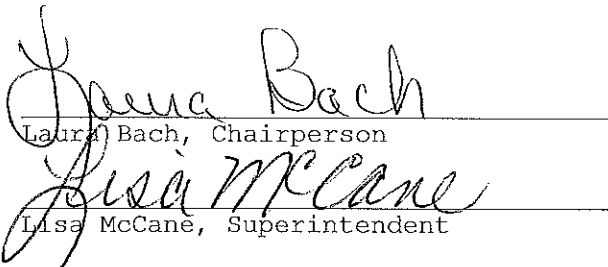 Laura Bach
Laura Bach, Chairperson
Lisa McCane
Lisa McCane, Superintendent